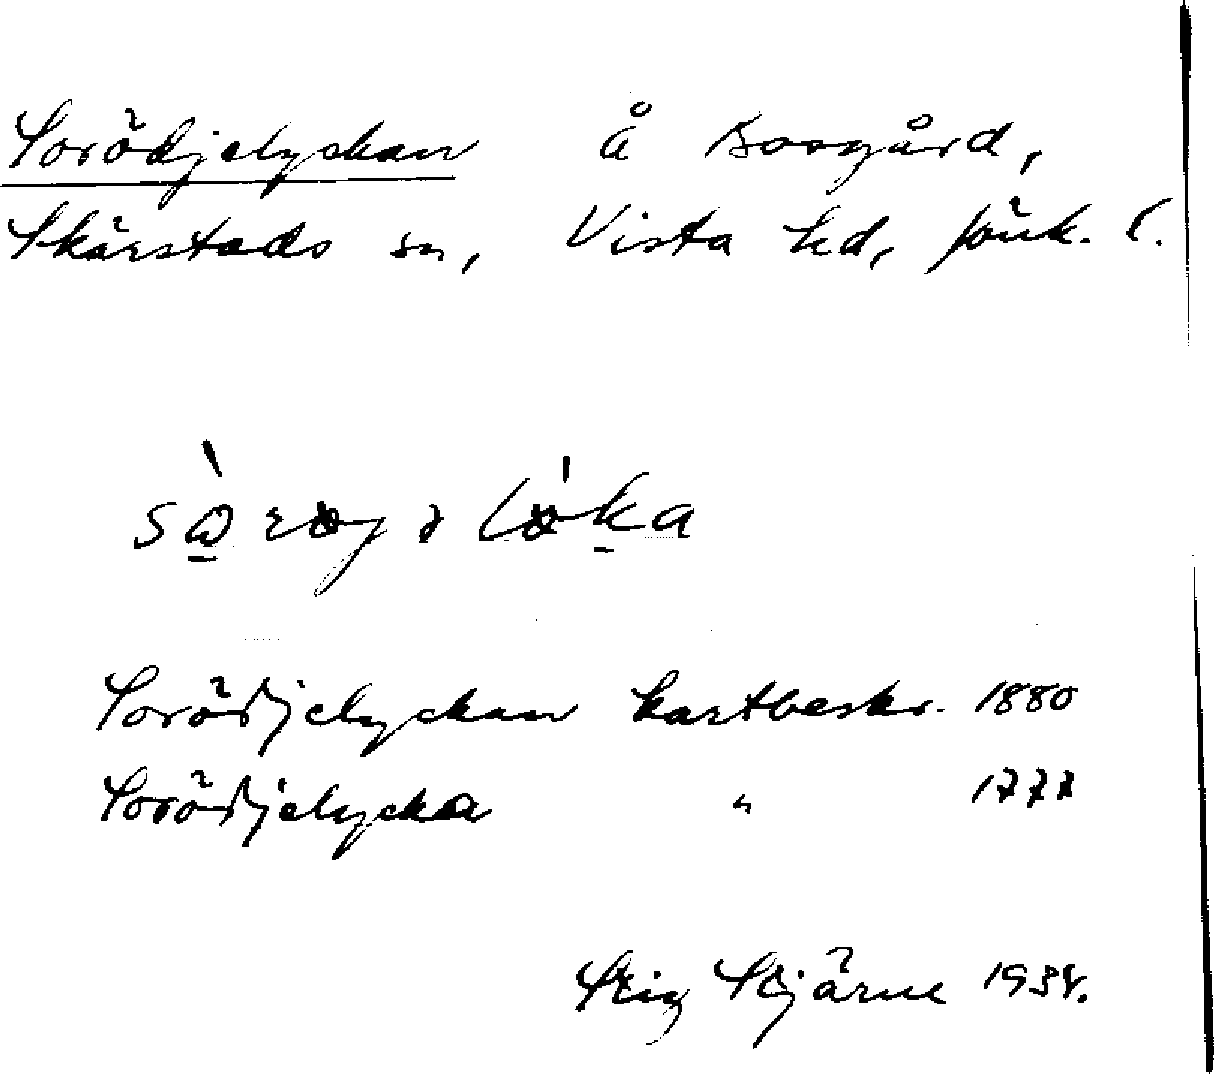 Sorödjelyckan å Bosgård,
Skärstads sn, Vista hd, Jönk. l.
Sorödjelyckan kartbeskr. 1880
Sorödjelycka " 1777
Stig Stjärne 1934.